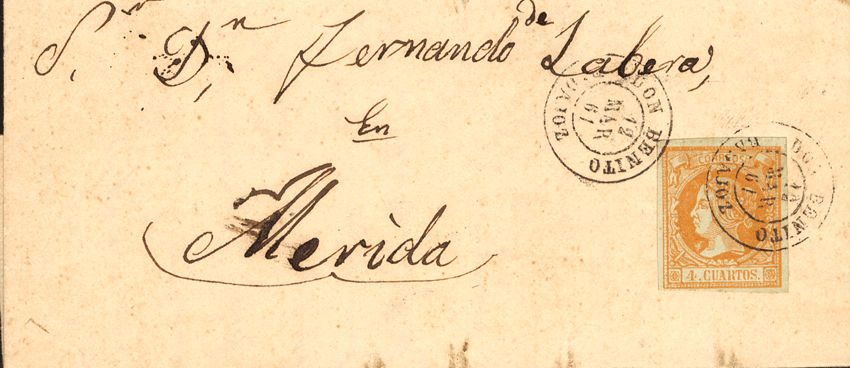 Sr. Dn. Fernando de Labera,
En
Merida
DON BENITO
12 MAR 61
BADAJOZ
CORREOS
4 CUARTOS.
DON BENITO
12 MAR 61
BADAJOZ